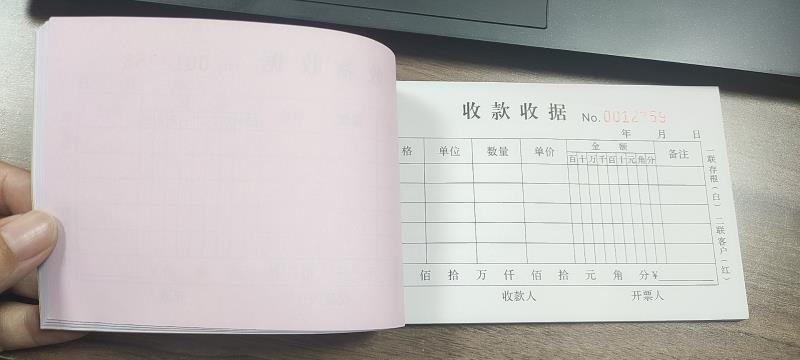 收款收据 No.0012759
年 月 日
格 单位 数量 单价 金额 备注
百十万千百十元角分
佰 拾 万 仟 佰 拾 元 角 分¥
收款人 开票人
一联存根（白） 二联客户（红）